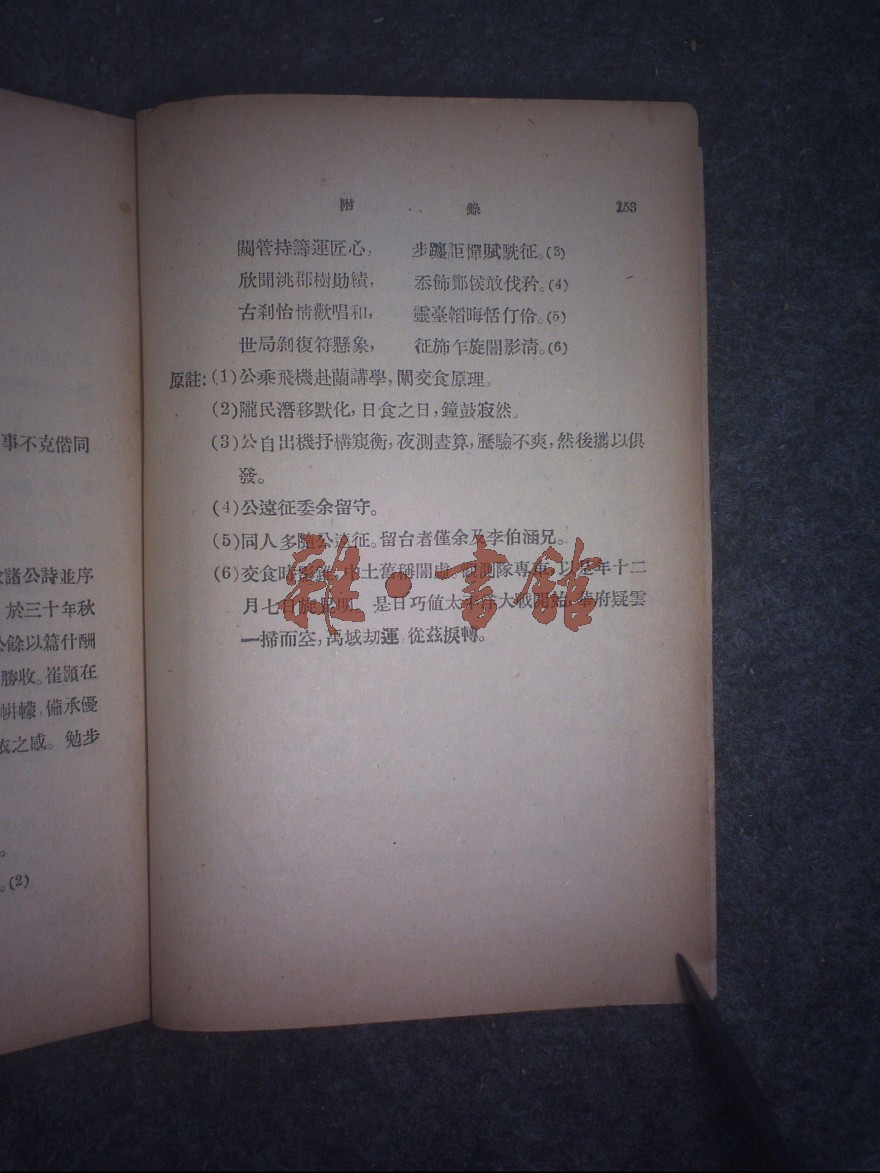 附 錄 253
闚管持籌運匠心， 步躔詎憚賦駪征。(3)
欣聞洮郡樹勛績， 忝飾酇侯敢伐矜。(4)
古刹怡情歡唱和， 靈臺韜晦恬仃伶。(5)
世局剝復符懸象， 征斾乍旋闇影淸。(6)
原註：(1)公乘飛機赴蘭講學，闡交食原理。
(2)隴民潛移默化，日食之日，鐘鼓寂然。
(3)公自出機抒構窺衡，夜測晝算，歷驗不爽，然後攜以俱
發。
(4)公遠征委余留守。
(5)同人多隨公遠征。留台者僅余及李伯涵兄。
(6)交食時影錐，中土舊稱闇虛。觀測隊專車，以是年十二
月七日旋昆明。是日巧值太平洋大戰開始，華府疑雲
一掃而空，禹域刧運 從茲捩轉。
事不克偕同
諸公詩並序
於三十年秋
餘以篇什酬
勝收。崔顥在
帡幪，備承優
之感。勉步
。
。(2)
雜·書館